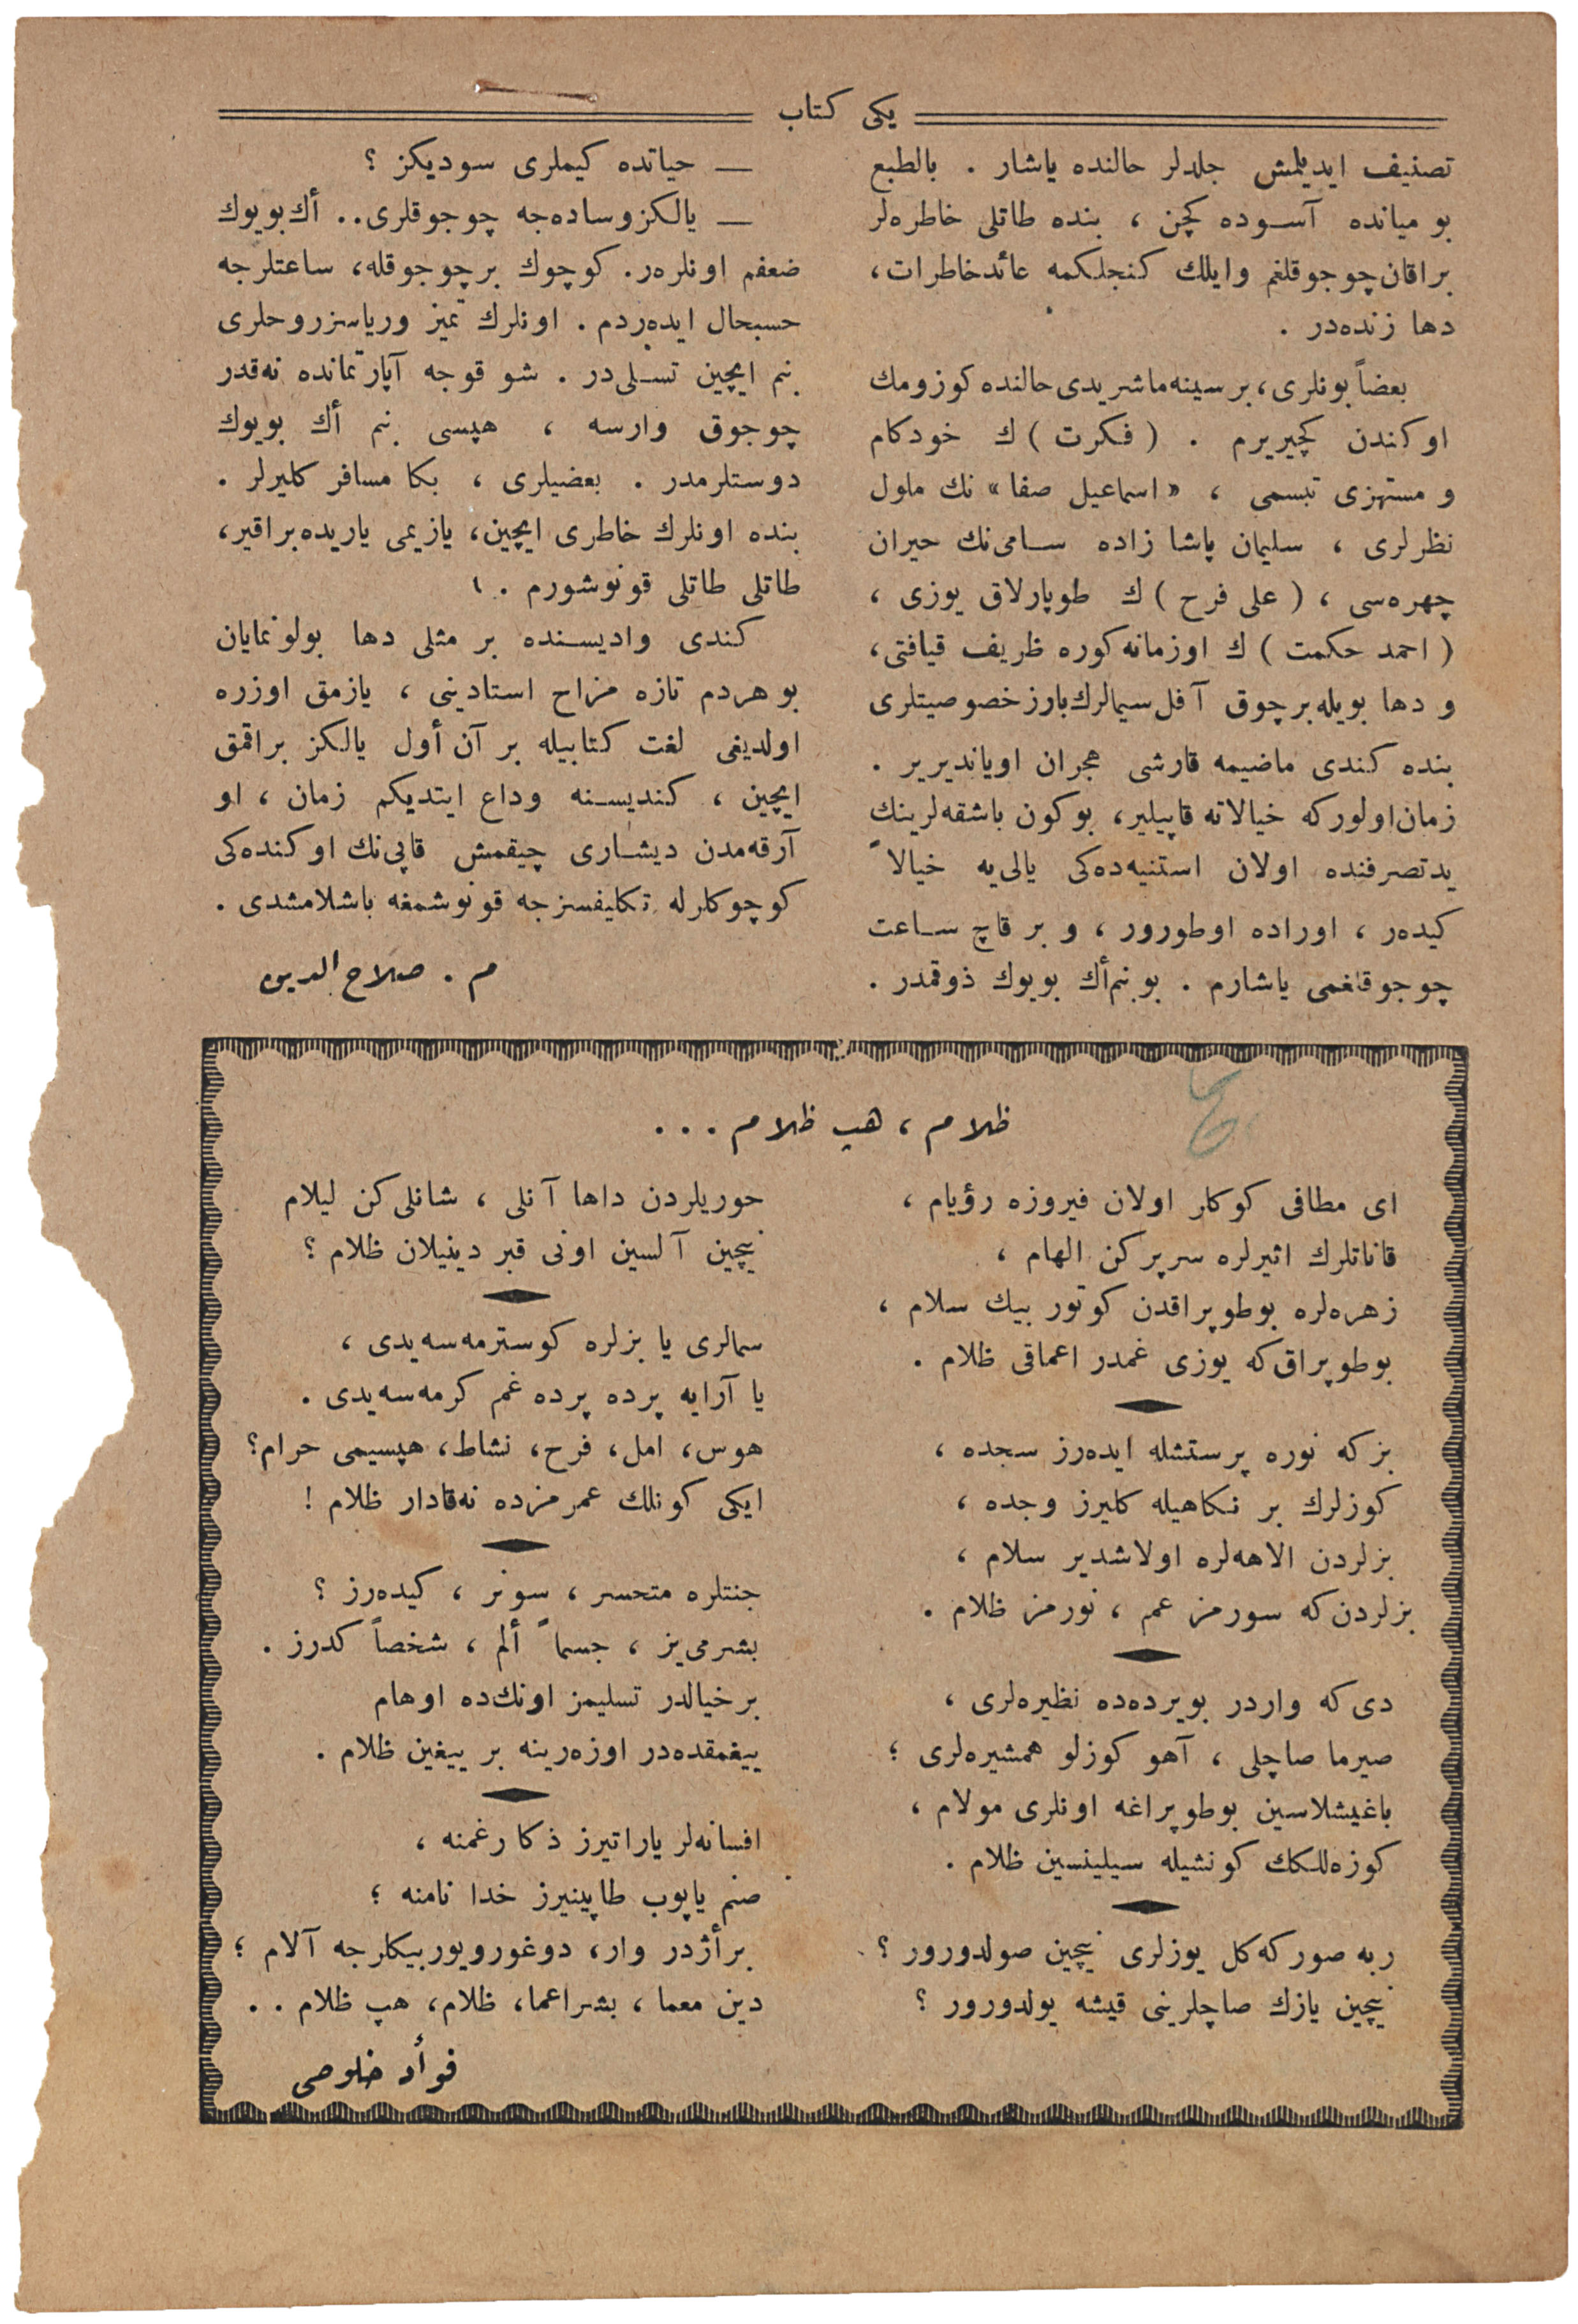 یکی کتاب
تصنیف ایدیلمش جلدلر حالنده یاشار . بالطبع
بو میانده آسوده کچن ، بنده طاتلی خاطره‌لر
براقان چوجوقلغم وایلك کنجلکمه عائد خاطرات،
دها زنده‌در .
بعضاً بونلری، بر سینه‌ما شریدی حالنده کوزومك
اوکندن کچیریرم . ( فکرت ) ك خودکام
و مستهزی تبسمی ، « اسماعیل صفا» نك ملول
نظرلری ، سلیمان پاشا زاده سامی‌نك حیران
چهره‌سی ، ( علی فرح ) ك طوپارلاق یوزی ،
( احمد حکمت ) ك اوزمانه کوره ظریف قیافتی،
و دها بویله بر چوق آفل سیمالرك بارز خصوصیتلری
بنده کندی ماضیمه قارشی هجران اویاندیریر .
زمان اولورکه خیالاته قاپیلیر، بوکون باشقه‌لرینك
ید تصرفنده اولان استنیه‌ده‌کی یالی‌یه خیالاً
کیده‌ر ، اوراده اوطورور ، و بر قاچ ساعت
چوجوقلغمی یاشارم . بو بنم أك بویوك ذوقمدر .
— حیاتده کیملری سودیکز ؟
— یالکز وساده‌جه چوجوقلری.. أك بویوك
ضعفم اونلره‌ر. کوچوك بر چوجوقله، ساعتلرجه
حسبحال ایده‌ردم . اونلرك تمیز وریاسز روحلری
بنم ایچین تسلی‌در . شو قوجه آپارتمانده نه‌قدر
چوجوق وارسه ، هپسی بنم أك بویوك
دوستلرمدر . بعضیلری ، بکا مسافر کلیرلر .
بنده اونلرك خاطری ایچین، یازیمی یاریده براقیر،
طاتلی طاتلی قونوشورم .
کندی وادیسنده بر مثلی دها بولونمایان
بو هردم تازه مزاح استادینی ، یازمق اوزره
اولدیغی لغت کتابیله بر آن أول یالکز براقمق
ایچین ، کندیسنه وداع ایتدیکم زمان ، او
آرقه‌مدن دیشاری چیقمش قاپی‌نك اوکنده‌کی
کوچوکلرله تکلیفسزجه قونوشمغه باشلامشدی .
م . صلاح الدین
ظلام ، هپ ظلام ...
ای مطافی کوکلر اولان فیروزه رؤیام ،
قاناتلرك اثیرلره سرپرکن الهام ،
زهره‌لره بوطوپراقدن کوتور بیك سلام ،
بوطوپراق که یوزی غمدر اعماقی ظلام .
بز که نوره پرستشله ایده‌رز سجده ،
کوزلرك بر نکاهیله کلیرز وجده ،
بزلردن الاهه‌لره اولاشدیر سلام ،
بزلردن که سورمز عمم ، نورمز ظلام .
دی که واردر بویرده‌ده نظیره‌لری ،
صیرما صاچلی ، آهو کوزلو همشیره‌لری ؛
باغیشلاسین بوطوپراغه اونلری مولام ،
کوزه‌للکك کونشیله سیلینسین ظلام .
ربه صور که کل یوزلری نیچین صولدورور ؟
نیچین یازك صاچلرینی قیشه یولدورور ؟
حوریلردن داها آنلی ، شانلی کن لیلام
نیچین آلسین اونی قبر دینیلان ظلام ؟
سمالری یا بزلره کوسترمه‌سه‌یدی ،
یا آرایه پرده پرده غم کرمه‌سه‌یدی .
هوس، امل، فرح، نشاط، هپسیمی حرام؟
ایکی کونلك عمرمزده نه‌قادار ظلام !
جنتلره متحسر ، سونر ، کیده‌رز ؟
بشرمی‌یز ، جسماً ألم ، شخصاً کدرز .
بر خیالدر تسلیمز اونك‌ده اوهام
ییغمقده‌در اوزه‌رینه بر ییغین ظلام .
افسانه‌لر یاراتیرز ذکا رغمنه ،
صنم یاپوب طاپینیرز خدا نامنه ؛
بر أژدر وار، دوغورویور بیکلرجه آلام ؛
دین معما ، بشر اعما، ظلام، هپ ظلام ..
فوأد خلوصی